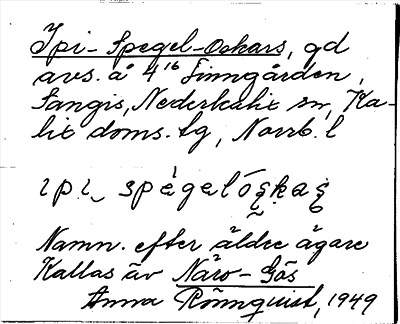 Ipi-Spegel-Oskars, gd
avs. å 4¹⁶ Finngården,
Sangis, Nederkalix sn, Ka-
lix doms. tg, Norrb. l
Namn. efter äldre ägare
Kallas äv Näro-Gös
Anna Rönnquist, 1949